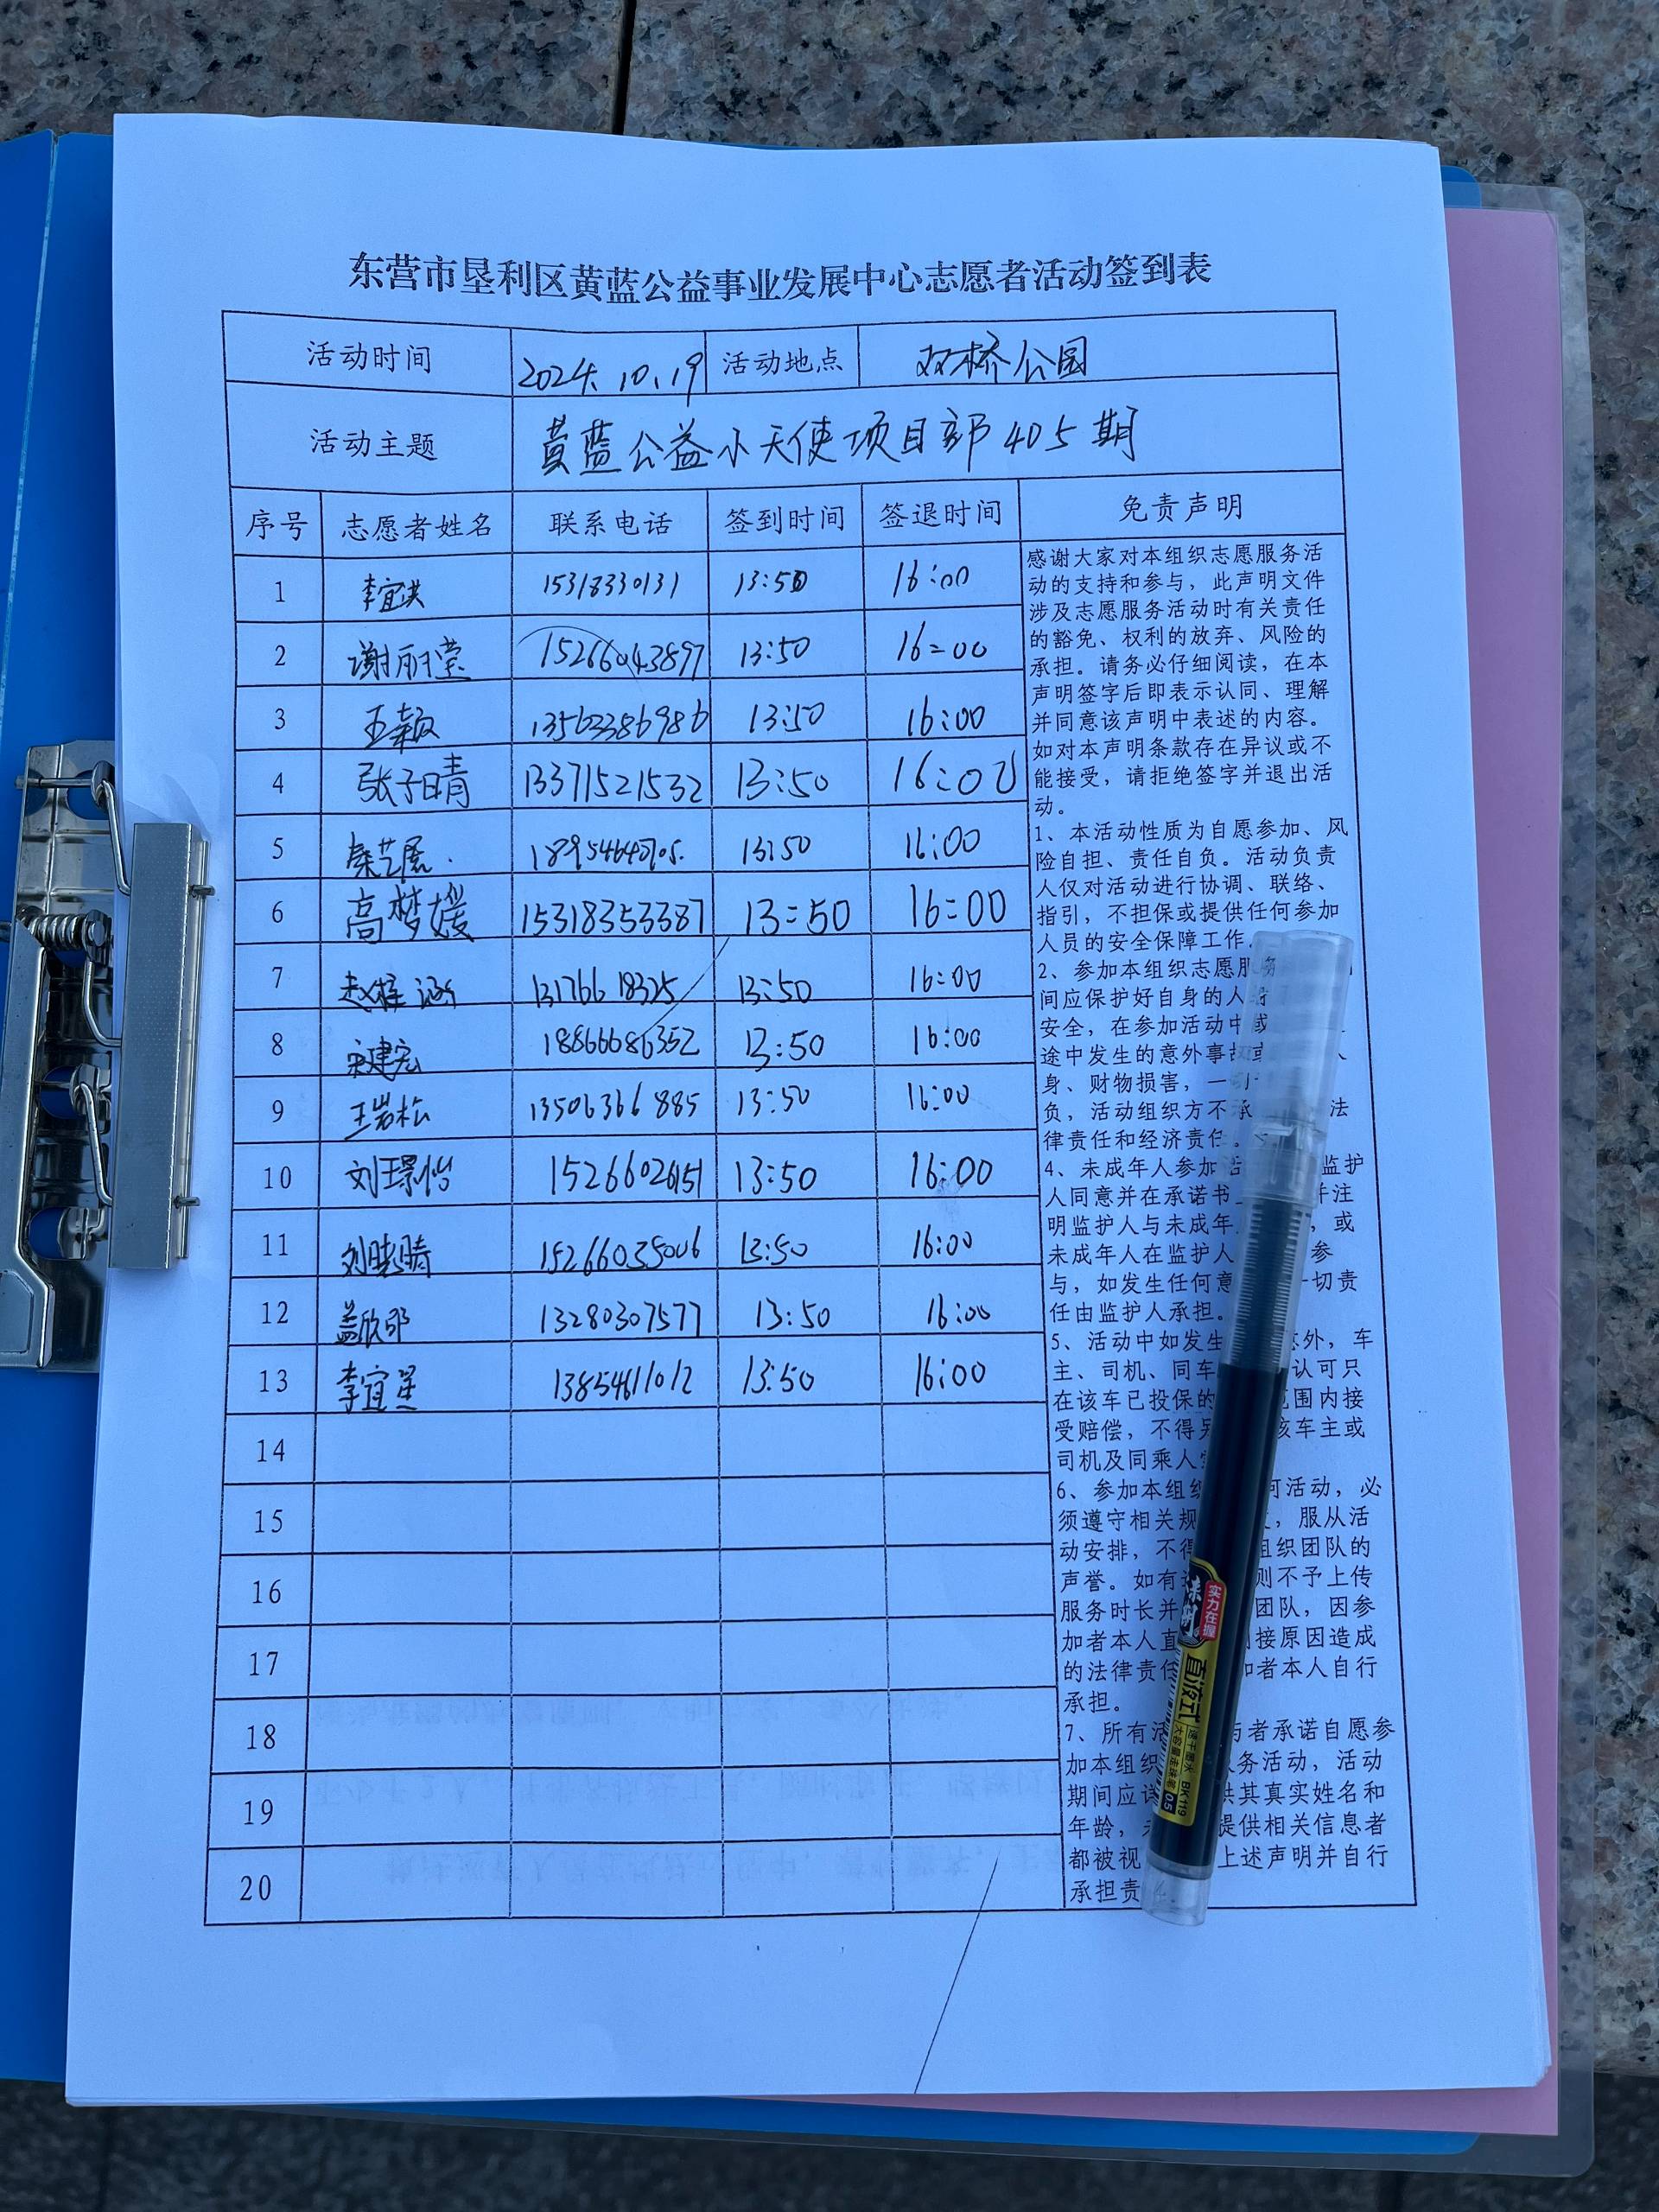 东营市垦利区黄蓝公益事业发展中心志愿者活动签到表
活动时间 2024.10.19 活动地点 双桥公园
活动主题 黄蓝公益小天使项目部405期
序号 志愿者姓名 联系电话 签到时间 签退时间 免责声明
1 李宜洪 15318330131 13:50 16:00
2 谢丽莹 15266043897 13:50 16:00
3 王颖 13562386986 13:50 16:00
4 张子晴 13371521532 13:50 16:00
5 秦艺展 13:50 16:00
6 高梦媛 15318353387 13:50 16:00
7 赵梓涵 13176618325 13:50 16:00
8 宋建宏 18866686352 13:50 16:00
9 王岩松 13506366885 13:50 16:00
10 刘璟怡 15266026151 13:50 16:00
11 刘晓晴 15266035006 13:50 16:00
12 盖欣 13280307577 13:50 16:00
13 李宜星 13854611012 13:50 16:00
14
15
16
17
18
19
20
感谢大家对本组织志愿服务活
动的支持和参与，此声明文件
涉及志愿服务活动时有关责任
的豁免、权利的放弃、风险的
承担。请务必仔细阅读，在本
声明签字后即表示认同、理解
并同意该声明中表述的内容。
如对本声明条款存在异议或不
能接受，请拒绝签字并退出活
动。
1、本活动性质为自愿参加、风
险自担、责任自负。活动负责
人仅对活动进行协调、联络、
指引，不担保或提供任何参加
人员的安全保障工作。
2、参加本组织志愿服
间应保护好自身的人
安全，在参加活动中或
途中发生的意外事故或 人
身、财物损害，一切
负，活动组织方不承 法
律责任和经济责任。
4、未成年人参加 监护
人同意并在承诺书 并注
明监护人与未成年 ，或
未成年人在监护人 参
与，如发生任何意 一切责
任由监护人承担。
5、活动中如发生 意外，车
主、司机、同车 认可只
在该车已投保的 范围内接
受赔偿，不得另 该车主或
司机及同乘人
6、参加本组织 何活动，必
须遵守相关规 ，服从活
动安排，不得 组织团队的
声誉。如有 则不予上传
服务时长并 团队，因参
加者本人直 间接原因造成
的法律责任 加者本人自行
承担。
7、所有活 与者承诺自愿参
加本组织 务活动，活动
期间应详 供其真实姓名和
年龄，未 提供相关信息者
都被视 上述声明并自行
承担责
实力在握
直液式
速干墨水
BK119
05